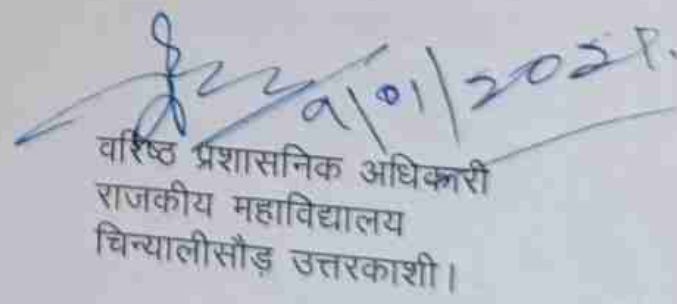 वरिष्ठ प्रशासनिक अधिकारी
राजकीय महाविद्यालय
चिन्यालीसौड़ उत्तरकाशी।